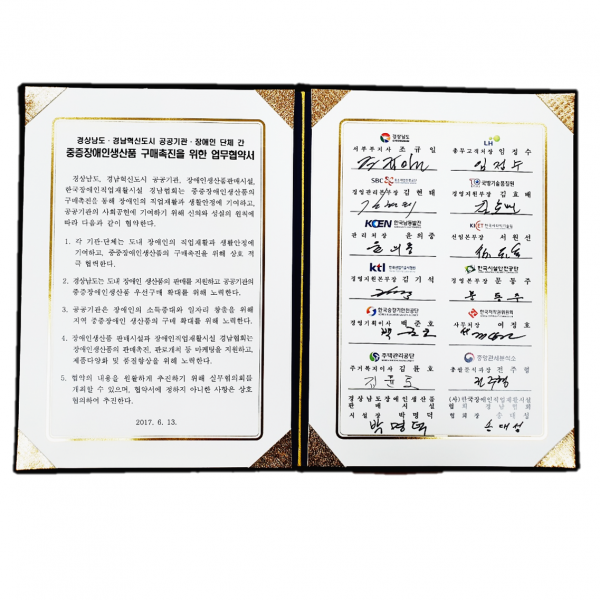 경상남도 · 경남혁신도시 공공기관 · 장애인 단체 간
중증장애인생산품 구매촉진을 위한 업무협약서
경상남도, 경남혁신도시 공공기관, 장애인생산품판매시설,
한국장애인직업재활시설 경남협회는 중증장애인생산품의
구매촉진을 통해 장애인의 직업재활과 생활안정에 기여하고,
공공기관의 사회공헌에 기여하기 위해 신의와 성실의 원칙에
따라 다음과 같이 협약한다.
1. 각 기관·단체는 도내 장애인의 직업재활과 생활안정에
기여하고, 중증장애인생산품의 구매촉진을 위해 상호 적
극 협력한다.
2. 경상남도는 도내 장애인 생산품의 판매를 지원하고 공공기관의
중증장애인생산품 우선구매 확대를 위해 노력한다.
3. 공공기관은 장애인의 소득증대와 일자리 창출을 위해
지역 중증장애인 생산품의 구매 확대를 위해 노력한다.
4. 장애인생산품 판매시설과 장애인직업재활시설 경남협회는
장애인생산품의 판매촉진, 판로개척 등 마케팅을 지원하고,
제품다양화 및 품질향상을 위해 노력한다.
5. 협약의 내용을 원활하게 추진하기 위해 실무협의회를
개최할 수 있으며, 협약서에 정하지 아니한 사항은 상호
협의하여 추진한다.
2017. 6. 13.
경상남도
LH
서부부지사 조규일
총무고객처장 임정수
임정수
SBC
국방기술품질원
경영관리본부장 김현태
경영지원부장 김호배
KOEN 한국남동발전
KICET
관리처장 윤의중
선임본부장 서원선
윤의중
ktl
한국시설안전공단
경영지원본부장 김기석
경영본부장 문동주
문동주
한국승강기안전공단
한국저작권위원회
경영기획이사 백준호
사무처장 이정호
주택관리공단
중앙관세분석소
주거복지이사 김윤호
총괄분석과장 전주형
김윤호
전주형
경상남도장애인생산품
판매시설
(사)한국장애인직업재활시설
협회 경남협회
시설장 박명덕
협회장 손대성
박명덕
손대성